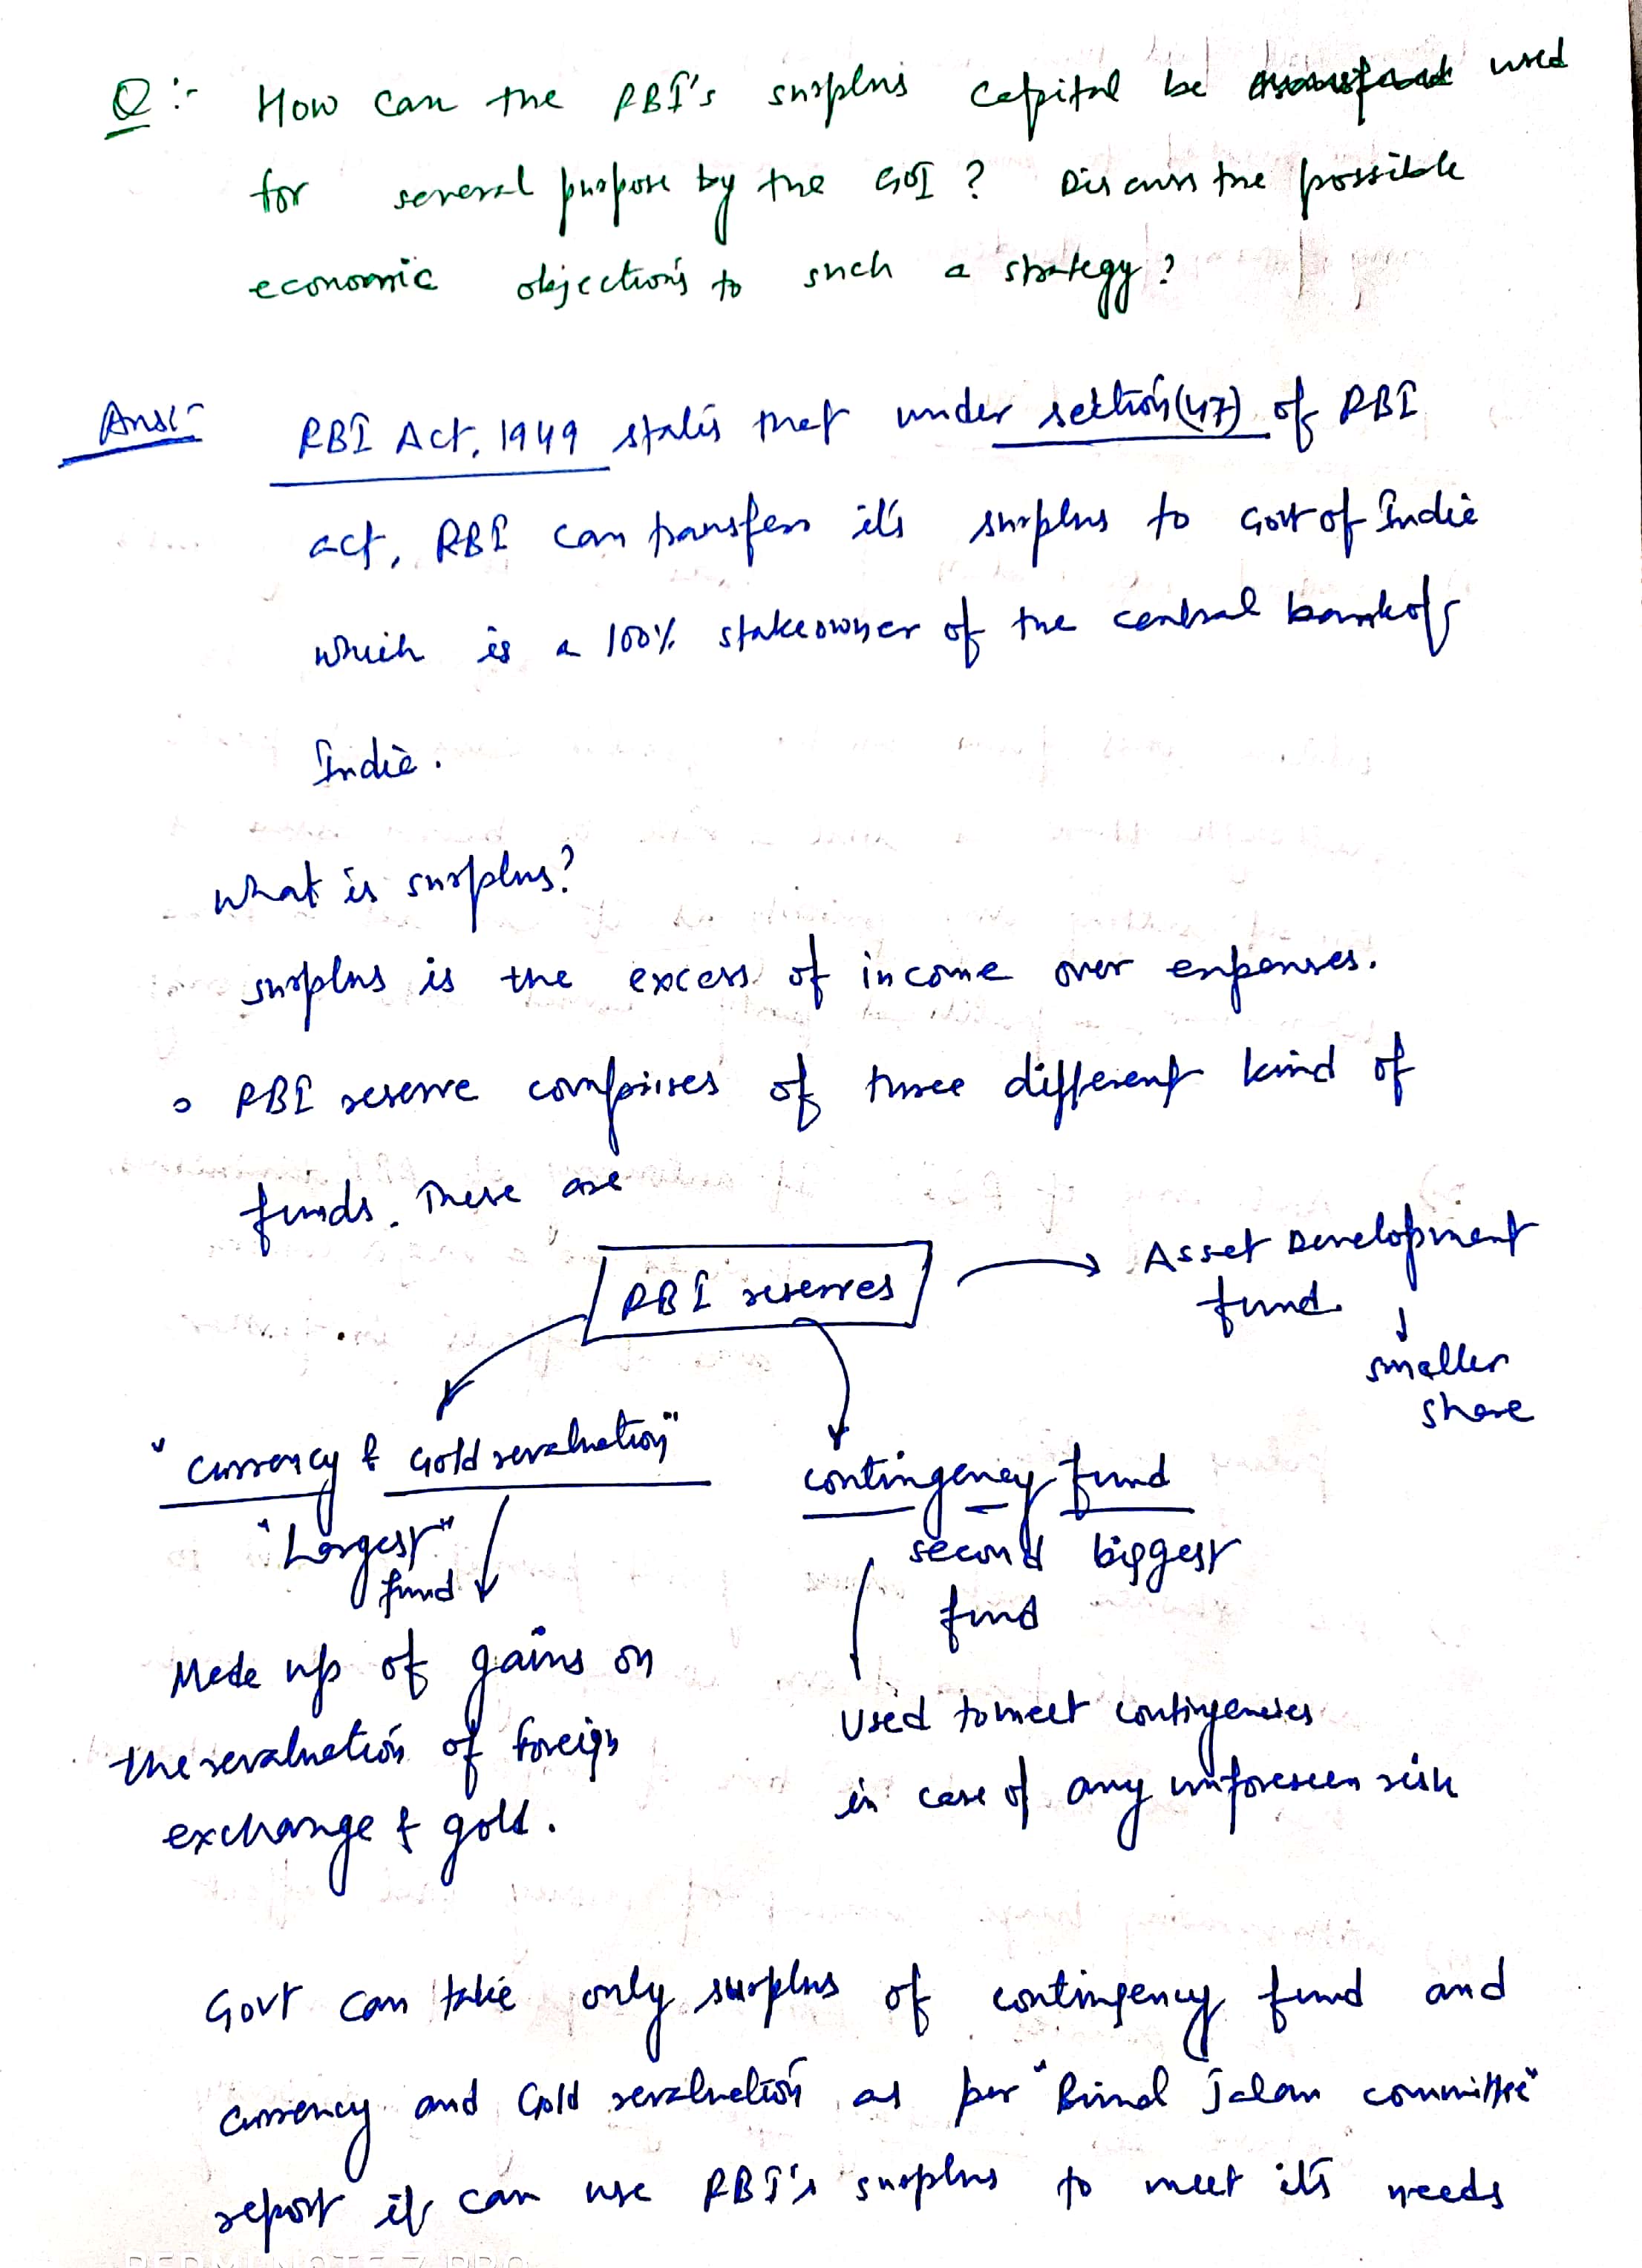 Q:- How can the RBI's surplus capital be used
for several purpose by the GOI ? Discuss the possible
economic objections to such a strategy?
Ans:- RBI Act, 1949 states that under section (47) of RBI
act, RBI can transfer it's surplus to Govt of India
which is a 100% stakeowner of the central bank of
India.
What is surplus?
surplus is the excess of income over expenses.
o RBI reserve comprises of three different kind of
funds. These are
RBI reserves → Asset Development
fund
↓
smaller
share
"currency & Gold revaluation"
"Largest"
fund
Made up of gains on
the revaluation of foreign
exchange & gold.
contingency fund
second biggest
fund
Used to meet contingencies
in case of any unforeseen risk
Govt can take only surplus of contingency fund and
currency and Gold revaluation as per "Bimal Jalan committee"
report it can use RBI's surplus to meet it's needs